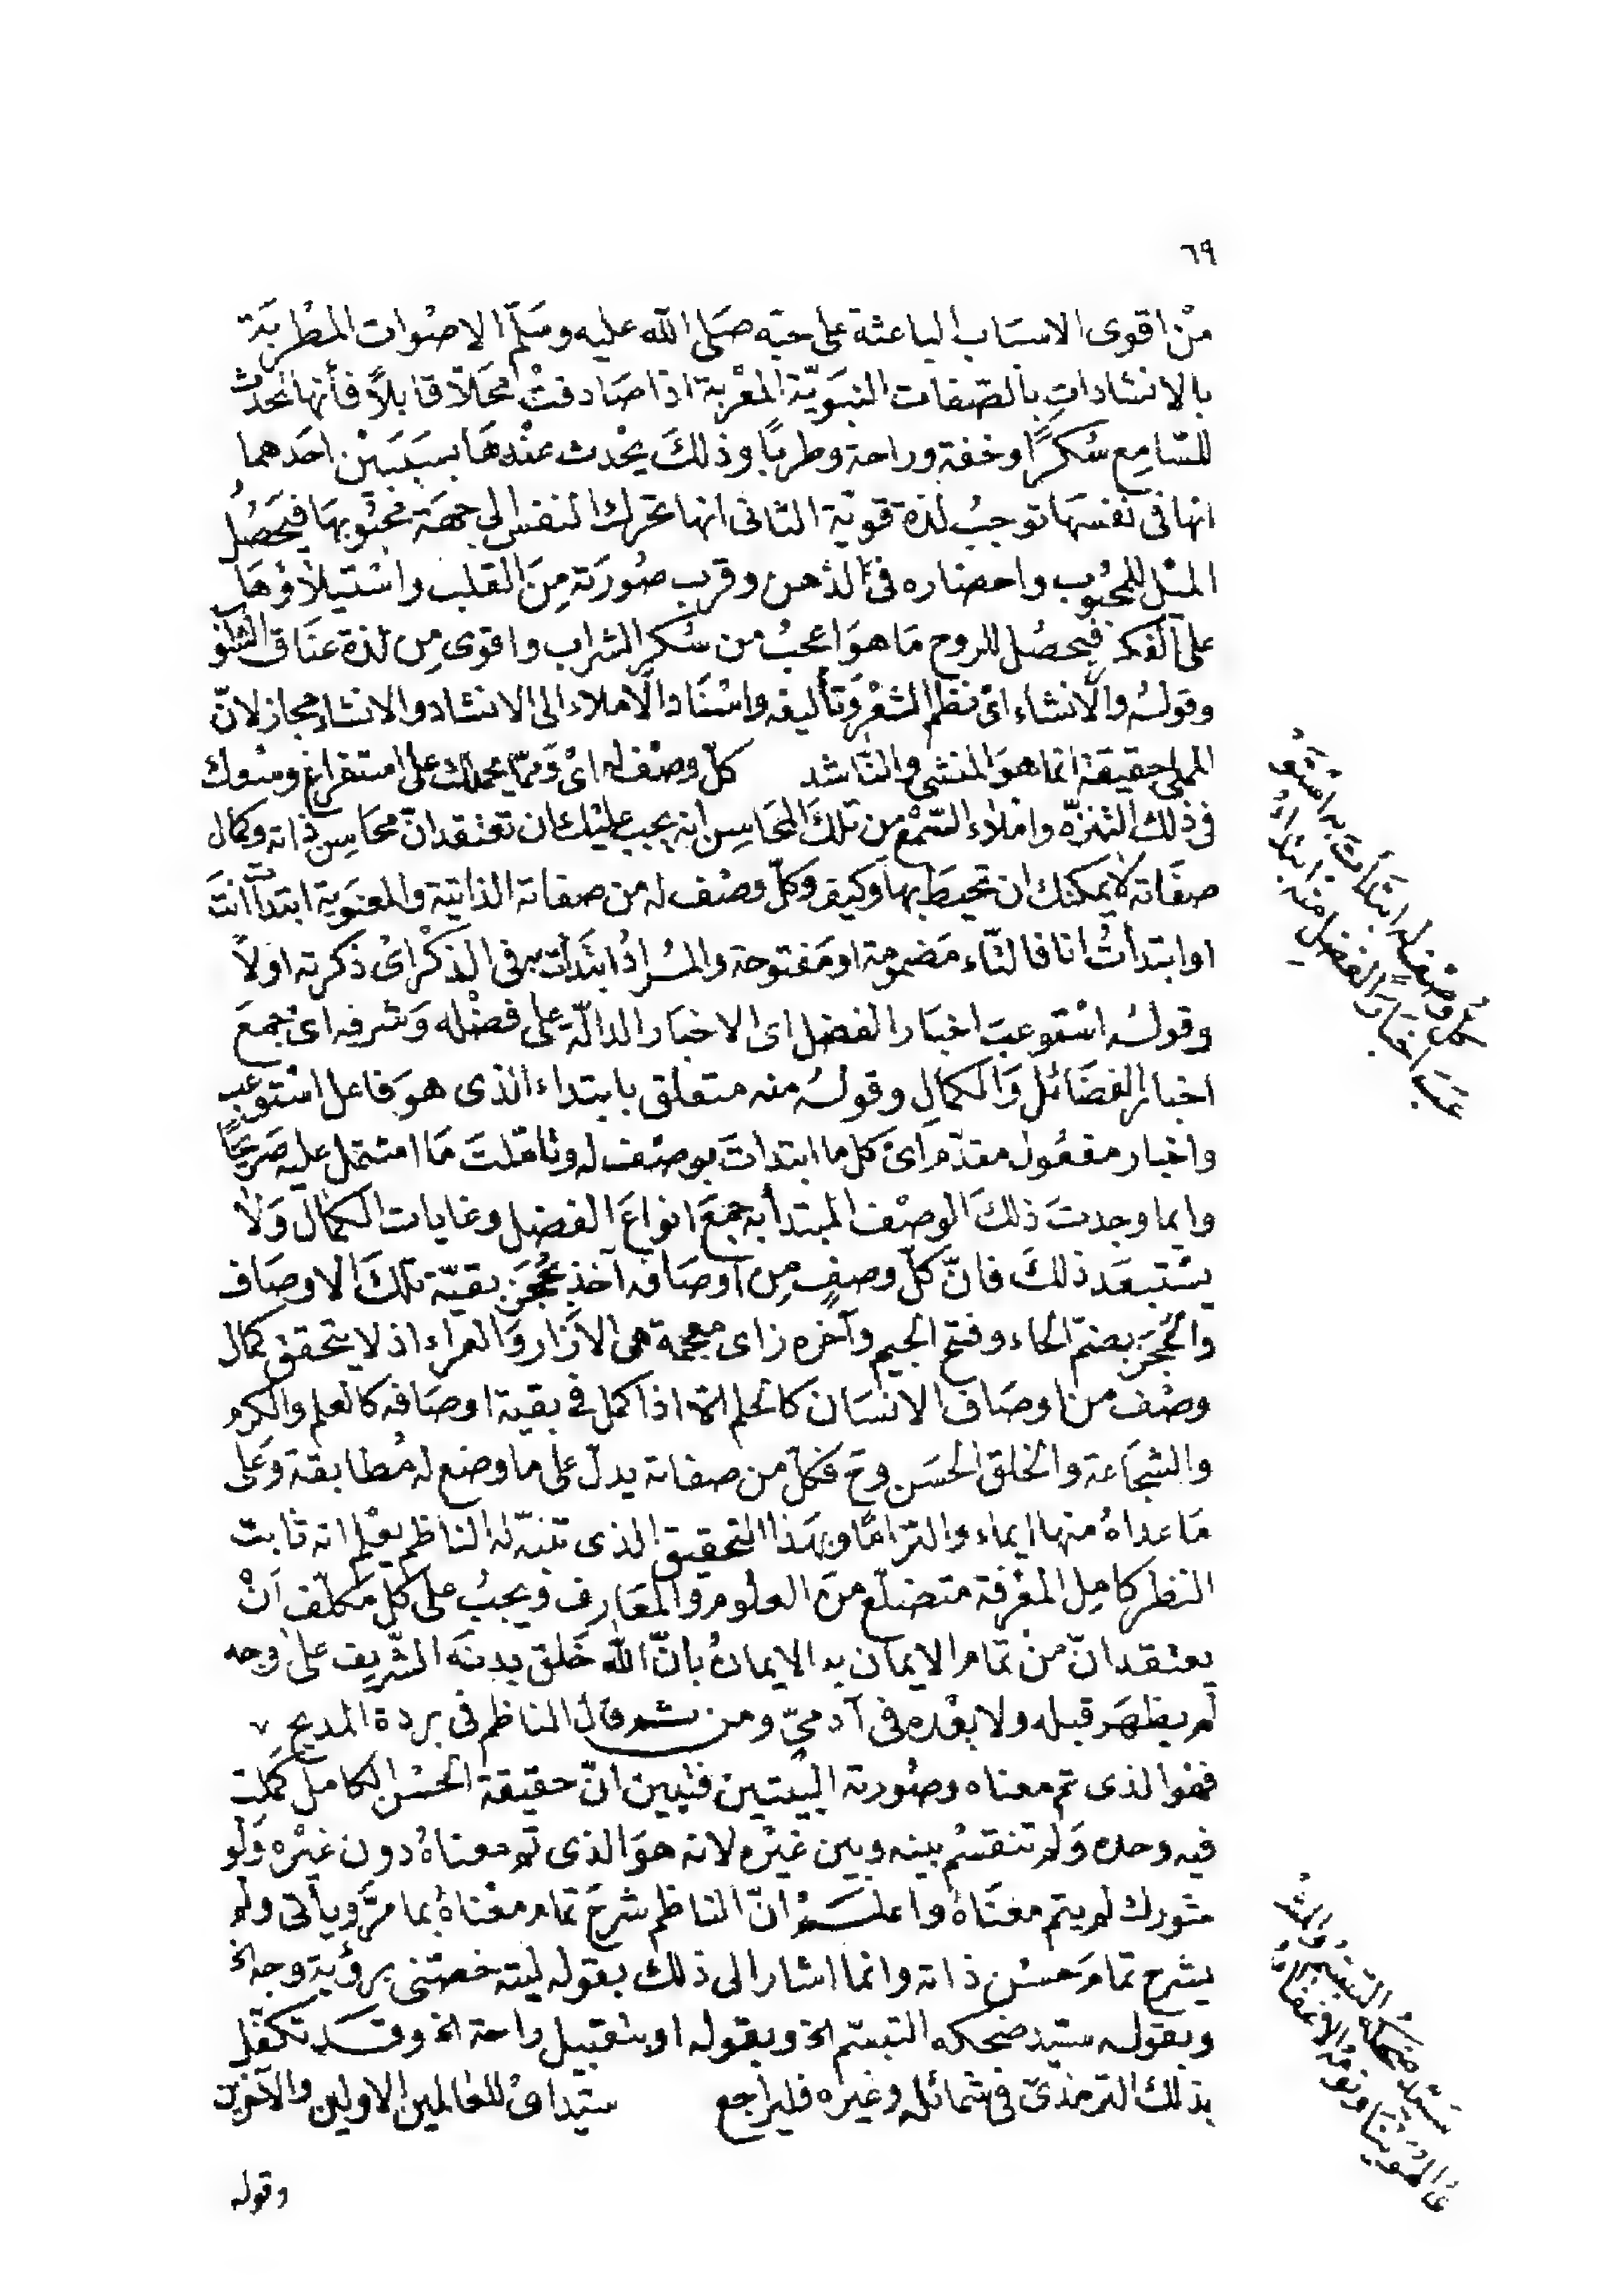 ٦٩
من اقوى الاسباب الباعثة على حبه صَلى الله عليه وسَلّم الاصوات المطربة
بالانشادات بالصفات النبَويّة المعْربة اذا صَادفتْ محَلّاً قابلاً فأنها تحدث
للسّامِع سُكرًا وخفة وراحة وطربًا وذلكَ يحْدث عنْدهَا بسَبَبَيْن احَدهما
انها فى نفسهَا توجبُ لذة قويّة الثانى انها تحرك النفس الى جهَة محْبُوبهَا فيَحْصُل
الميْل للمحبُوب واحضاره فى الذهن وقرب صُورَته مِنَ القلب واسْتيلاؤهَا
على الفكر فيحصُل للروح مَا هوَ اعجبُ من سُكر الشراب واقوى مِن لذة عنَاق الشابّ
وقولهُ والانشاء اىْ نظم الشعْر وَتأليفه واسْنَاد الاملاء الى الانشاد والانشاء مجاز لانّ
المملى حقيقة انما هوَ المنشى والنّاشد كلّ وصْف له اىْ وَممّا يحملك على استفراغ وسْعك
فى ذلك التنزّه واملاء السّمْع من تلكَ المحَاسِن انه يجب عليْك ان تعتقد انّ محَاسِن ذاته وكمال
صفَاته لا يمكنك ان تحيط بهَا وكيف وكلّ وصْف له من صفاته الذاتية والمعنَوية ابتدأتَ انتَ
او ابتدأتُ انا فالتّاء مَضمومة او مَفتوحة والمُراد ابتدَأت به فى الذكْر اىْ ذكرته اولاً
وقولهُ اسْتوعبَ اخبَار الفضل اى الاخبَار الدالّة على فضْله وَشرفه اىْ جمعَ
اخبار الفضَائل وَالكمالِ وقولهُ منه متعلق بابتداء الذى هوَ فاعل اسْتوعب
واخبار مفعُول مقدّم اىْ كل ما ابتدات بوصْف له وتاملتَ مَا اشتمل عليه صَريحًا
وايما وجدتَ ذلكَ الوصْف المبتدأ به جمَعَ انواعَ الفضل وغايات الكمَال وَلا
يسْتبعَد ذلكَ فانّ كلّ وصفٍ مِن اوصَافه آخذ بحُجَز بقيّة تلكَ الاوصَاف
والحُجَز بضمّ الحاء وفتح الجيم وآخره زاى معجمة هى الازَار وَالعراء اذ لا يتحقق كمال
وصْف من اوصَاف الانسَان كالحلم الا اذا كمل فى بقية اوصَافه كالعلم والكرم
والشجَاعة والخلق الحسَن وحَ فكلّ من صفاته يدل على ما وضع له مُطابقة وَعلى
مَا عداهُ منها ايماء والتزامًا وبهَذا التحقيق الذى تنبّه له الناظم يعْلم انه ثابت
النظر كامِل المعْرفة متضلّع منَ العلوم والمعَارف ويجبُ على كل مكلّف اَنْ
يعتقد انّ منْ تمَام الايمان به الايمانُ بانّ اللّه خَلق بدنَه الشّريف على وجه
لم يظهَر قبله ولا بعْده فى آدمىّ ومن ثم قال الناظم فى بردة المديح
فهو الذى تم معناه وصُورته البيْتين فتبين انّ حقيقة الحُسْن الكامل كمَلت
فيه وحده وَلم تنقسُم بينه وبين غيْره لانه هوَ الذى تم معناهُ دون غيْره وَلَو
شورك لم يتم معنَاهُ واعلم انّ الناظم شرحَ تمام معْناهُ بما مرَّ ويأتى ولم
يشرح تمامَ حسْن ذاته وانما اشار الى ذلك بقوله ليته خصّنى برؤية وجه الخ
وبقوله سيّد ضحكه التبسّم الخ وبقوله او بتقبيل راحة الخ وقد تكفّل
بذلك الترمذىّ فى شمائله وغيره فليراجع سيّد اىْ للعَالمين الاولين والآخرين
وقوله
كلُّ وصْفٍ له ابتدَأتَ به اسْتَوْ
عبَ اخبَارَ الفضْلِ منه ابتداءُ
سَيّد ضحكهُ التبسّمُ والمشْـ
ىُ الهُوَيْنا ونومُه الاغفاءُ